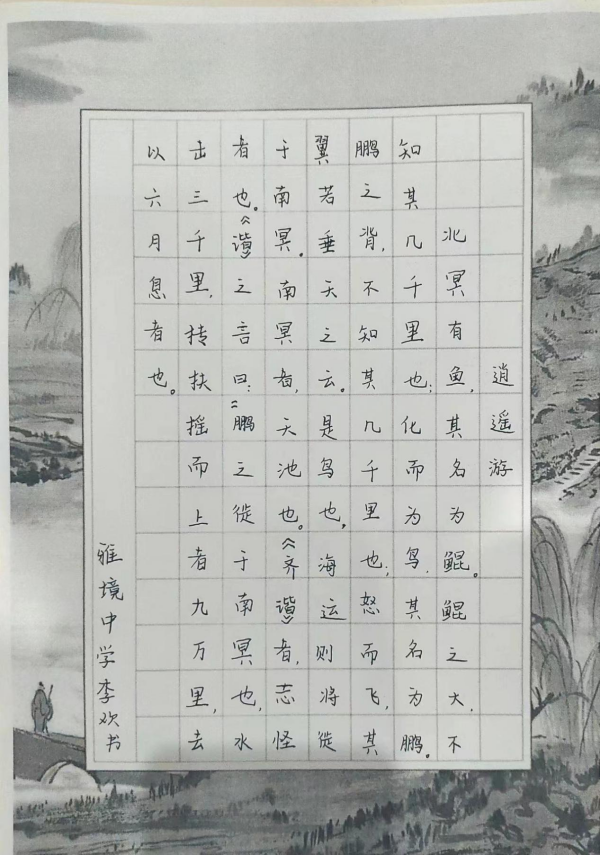 逍遥游
北冥有鱼,其名为鲲。鲲之大,不
知其几千里也;化而为鸟,其名为鹏。
鹏之背,不知其几千里也;怒而飞,其
翼若垂天之云。是鸟也,海运则将徙
于南冥。南冥者,天池也。《齐谐》者,志怪
者也。《谐》之言曰:“鹏之徙于南冥也,水
击三千里,抟扶摇而上者九万里,去
以六月息者也。
雅境中学李欢书